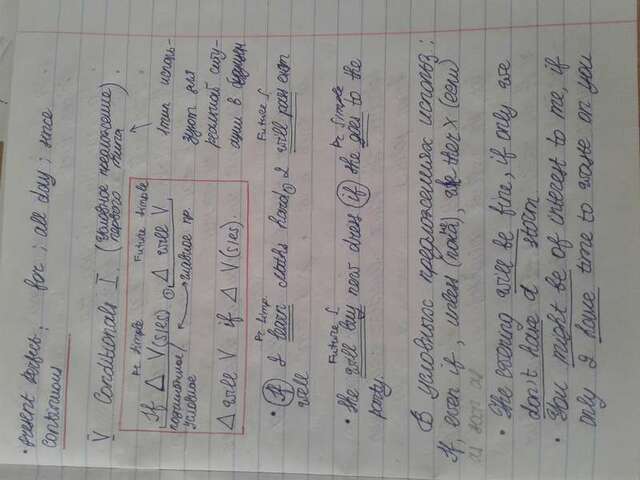 • Present Perfect: for; all day; since
Continuous
V Conditionals I. (условное предложение
первого типа)
Pr Simple Future Simple
If Δ V(s/es), Δ will V
подчинённое/ главное пр.
условное
Δ will V if Δ V(s/es).
1 тип исполь-
зуют для
реальной ситу-
ации в будущем
Pr Simp. Future S
• If I learn Maths hard, I will pass exam
well
Future S. Pr Simple
• She will buy new dress if she goes to the
party.
В условных предложениях использ:
If, even if, unless (пока не), whether x (если)
as soon as
• The evening will be fine, if only we
don't have a storm
• You might be of interest to me, if
only I have time to waste on you